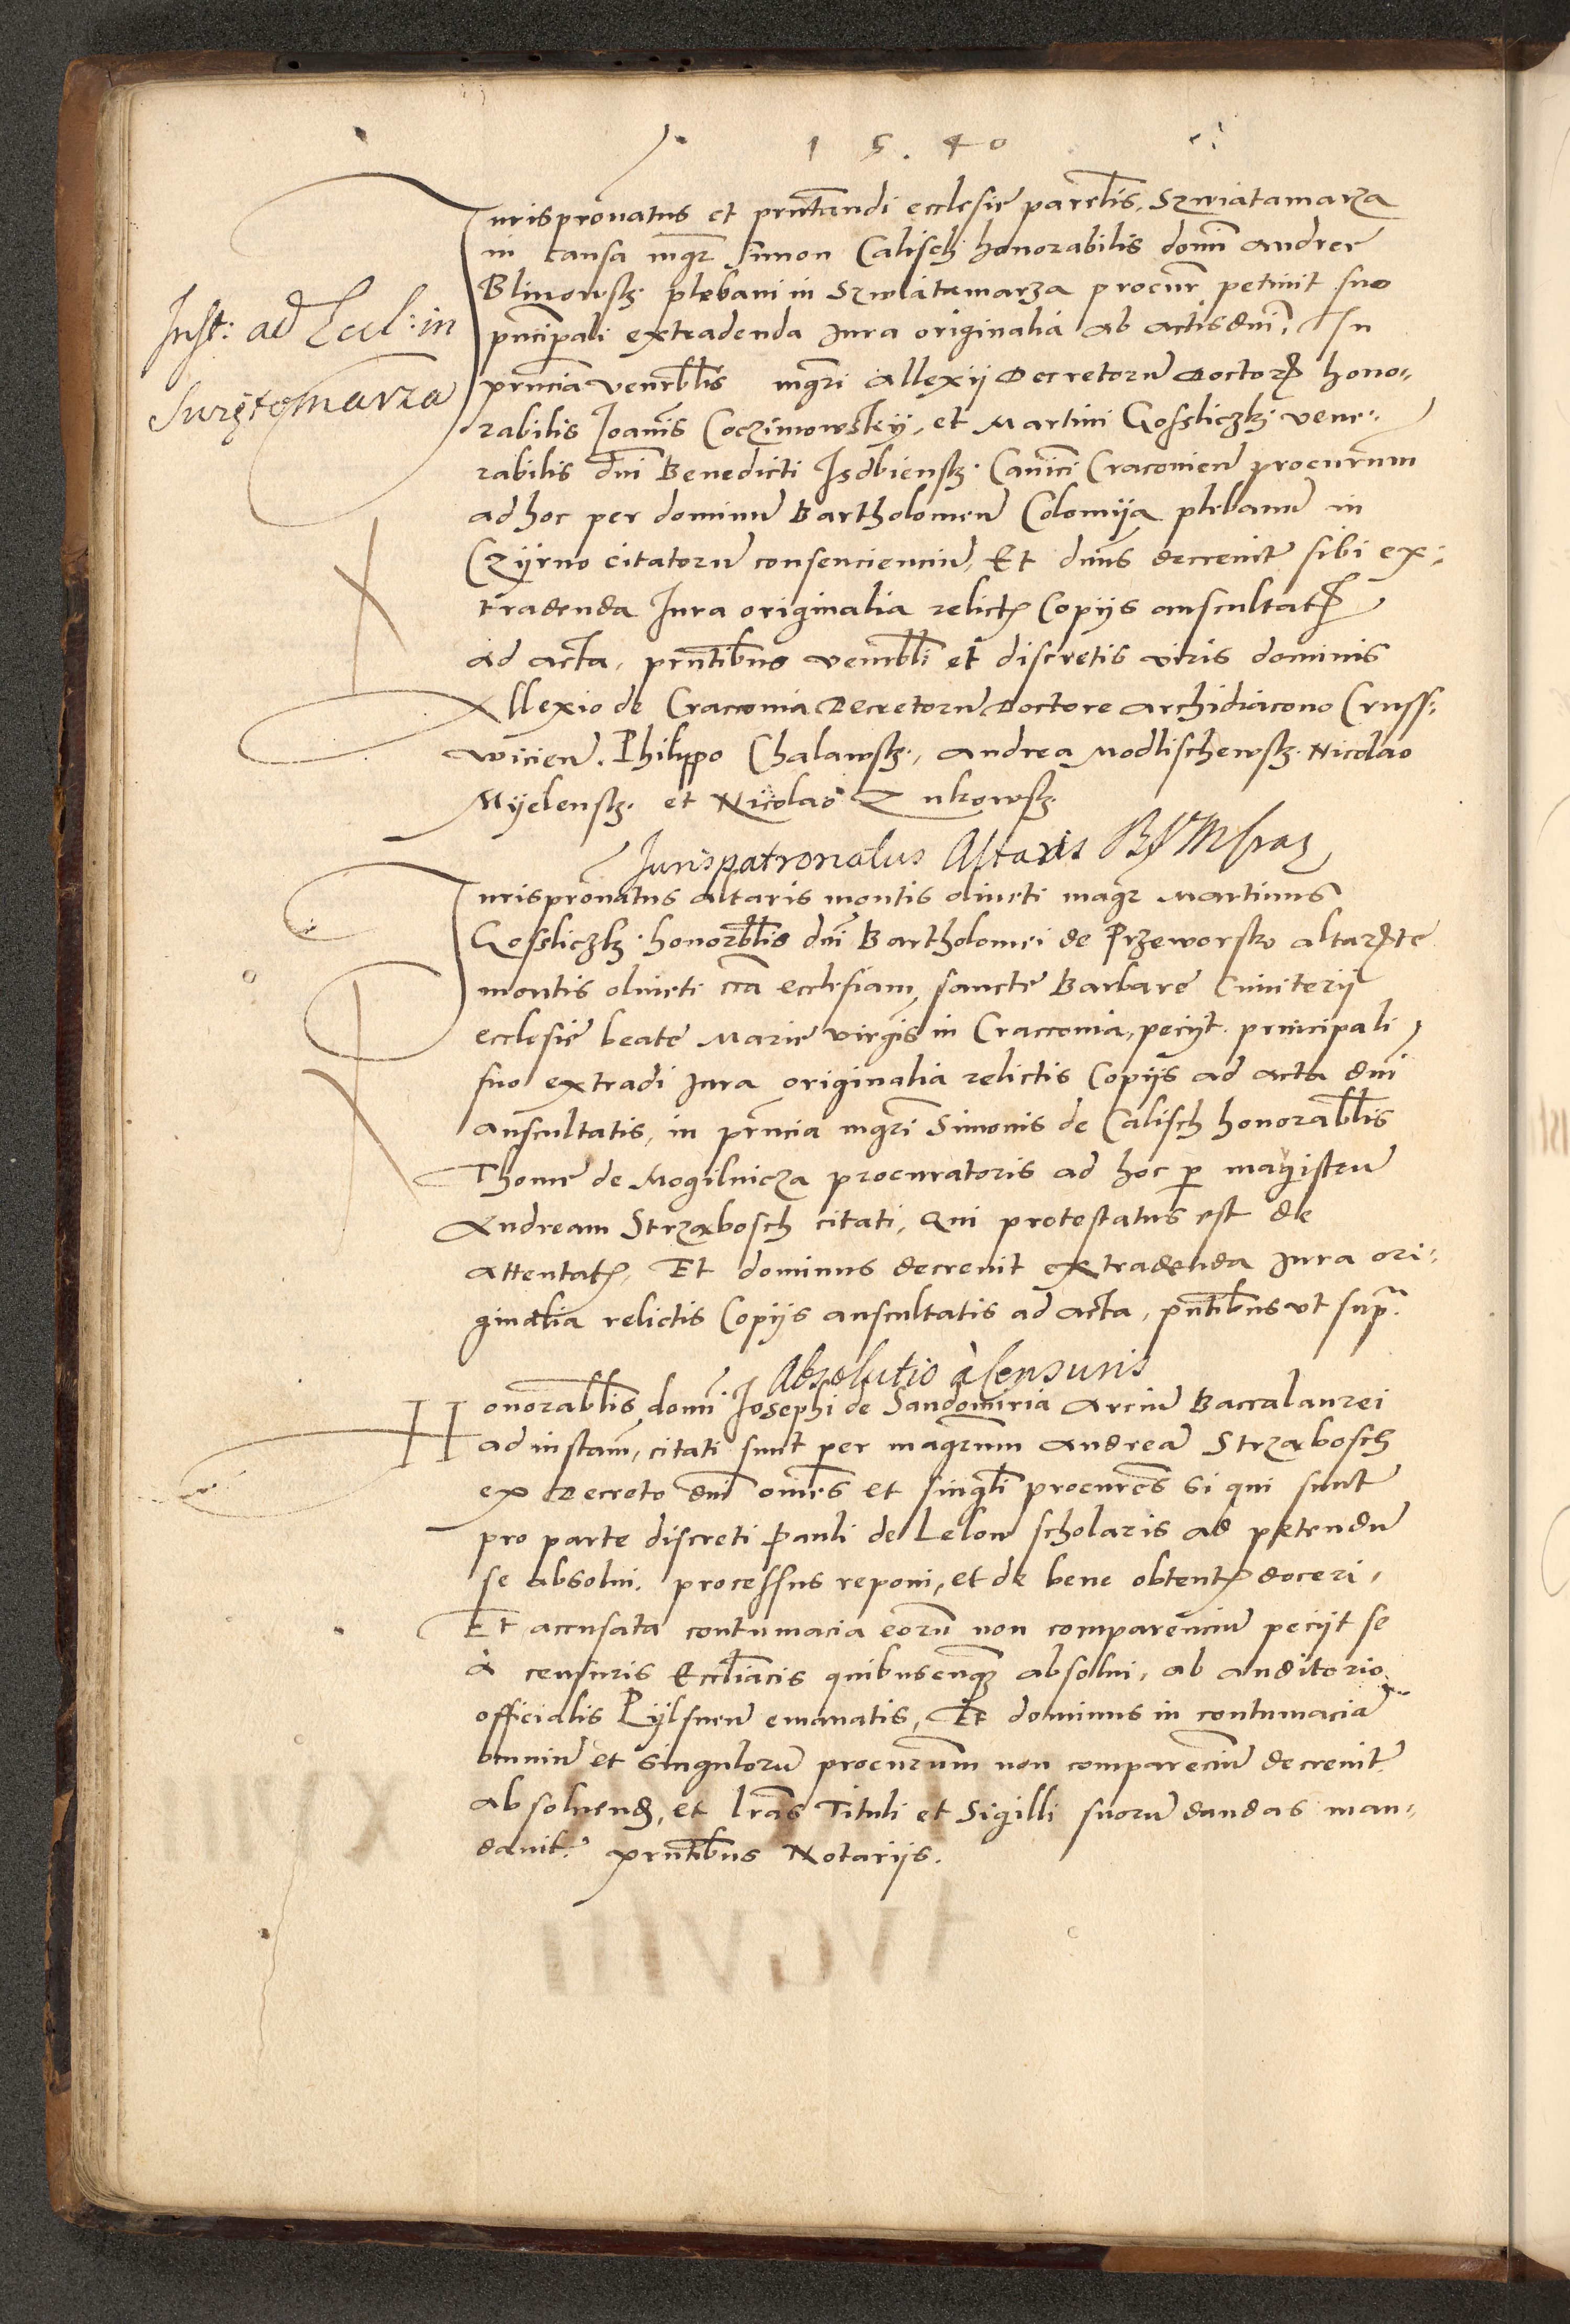 1 5 . 4 0
Iurispronatus et pnntandi ecclesie parrlis. Szwiatamarza
in causa mgr Simon Calisch honorabilis domi Andree
Blinowsk. plebani in Szwiatamarza procur petiuit suo
Inst: ad Eccl: in
pncipali extradenda Iura originalia ab actis dni, In
prncia venrblis mgri Allexij Decretoru Doctor hono-
Swiętomarza
rabilis Joanis Coczimowsky, et Martini Gossliczk. vene-
rabilis dni Benedicti Isdbiensk. Canici Cracouien procurum
ad hoc per dominu Bartholomeu Colomija plebanu in
Czijrno citatoru consencienciu, Et dnus decreuit sibi ex-
tradenda Iura originalia relictis Copijs auscultatis
ad acta, prntibus venrbli et discretis viris dominis
Allexio de Cracouia Decretoru Doctore Archidiacono Cruss-
wicien. Philippo Chalawsk., Andrea Modlischewsk. Nicolao
Myelensk. et Nicolao Zukowsk.
Jurispatronatus Altaris
Iurispronatus altaris montis oliueti magr Martinus
Gossliczk. honorblis dni Bartholomei de Przeworsko altariste
montis oliueti cca ecclesiam sancte Barbare Cimiterij
ecclesie beate Marie virgis in Cracouia, pecijt principali
suo extradi Iura originalia relictis Copijs ad acta dni
auscultatis, in prncia mgri Simonis de Calisch honorablis
Thome de Mogilnicza procuratoris ad hoc p magistru
Andream Strzabosch citati, Qui protestatus est de
attentatis, Et dominus decreuit extradenda Iura ori-
ginalia relictis Copijs auscultatis ad acta, pntibus vt supra
Absolutio à Censuris
Honorablis domi Josephi de Sandomiria Arciu Baccalaurei
ad instam, citati sunt per magrum Andrea Strzabosch
ex Decreto dni omnes et singli procures si qui sunt
pro parte discreti Pauli de Lelow scholaris ad petendu
se absolui. processus reponi, et de bene obtentis doceri,
Et accusata contumacia eoru non comparenciu pecijt se
à censuris Eccliacis quibuscunq absolui, ab auditorio
officialis Pijlsnen emanatis, Et dominus in contumacia
omniu et singuloru procurum non comparenciu decreuit
absoluend, et lras Tituli et Sigilli suoru dandas man-
dauit. prntibus Notarijs.